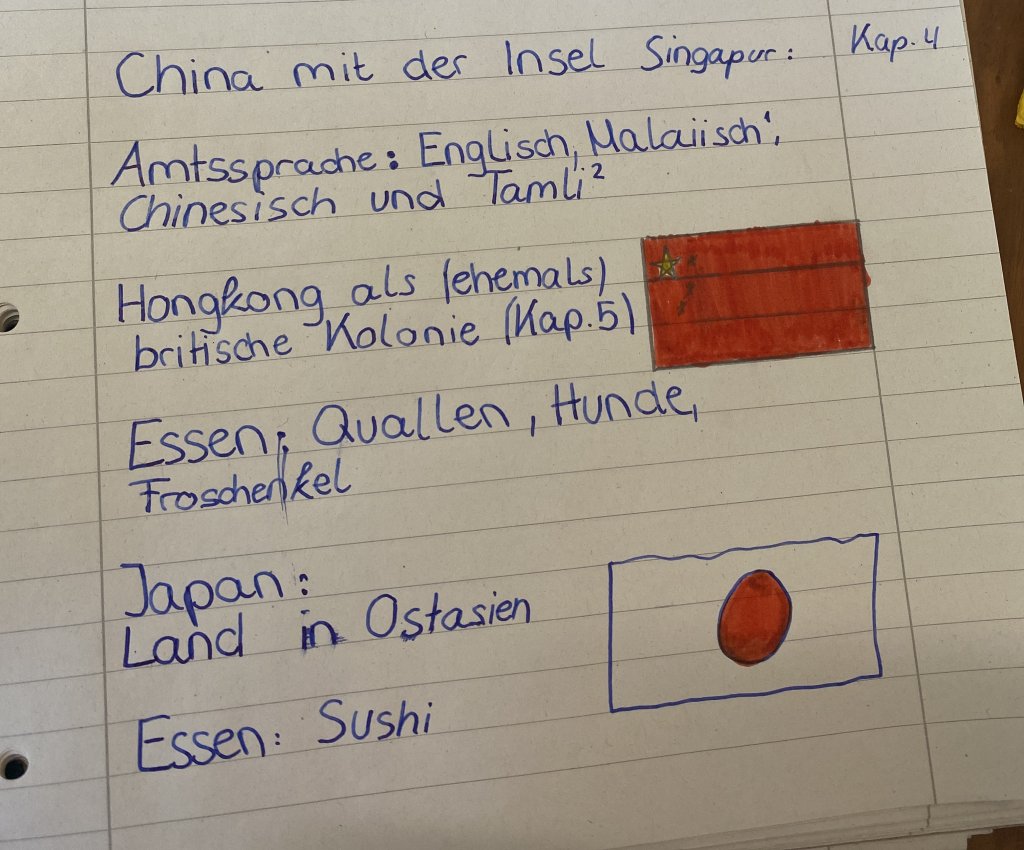 China mit der Insel Singapur: Kap. 4
Amtssprache: Englisch, Malaiisch¹,
Chinesisch und Tamli²
Hongkong als (ehemals)
britische Kolonie (Kap. 5)
Essen: Quallen, Hunde,
Froschenkel
Japan:
Land in Ostasien
Essen: Sushi